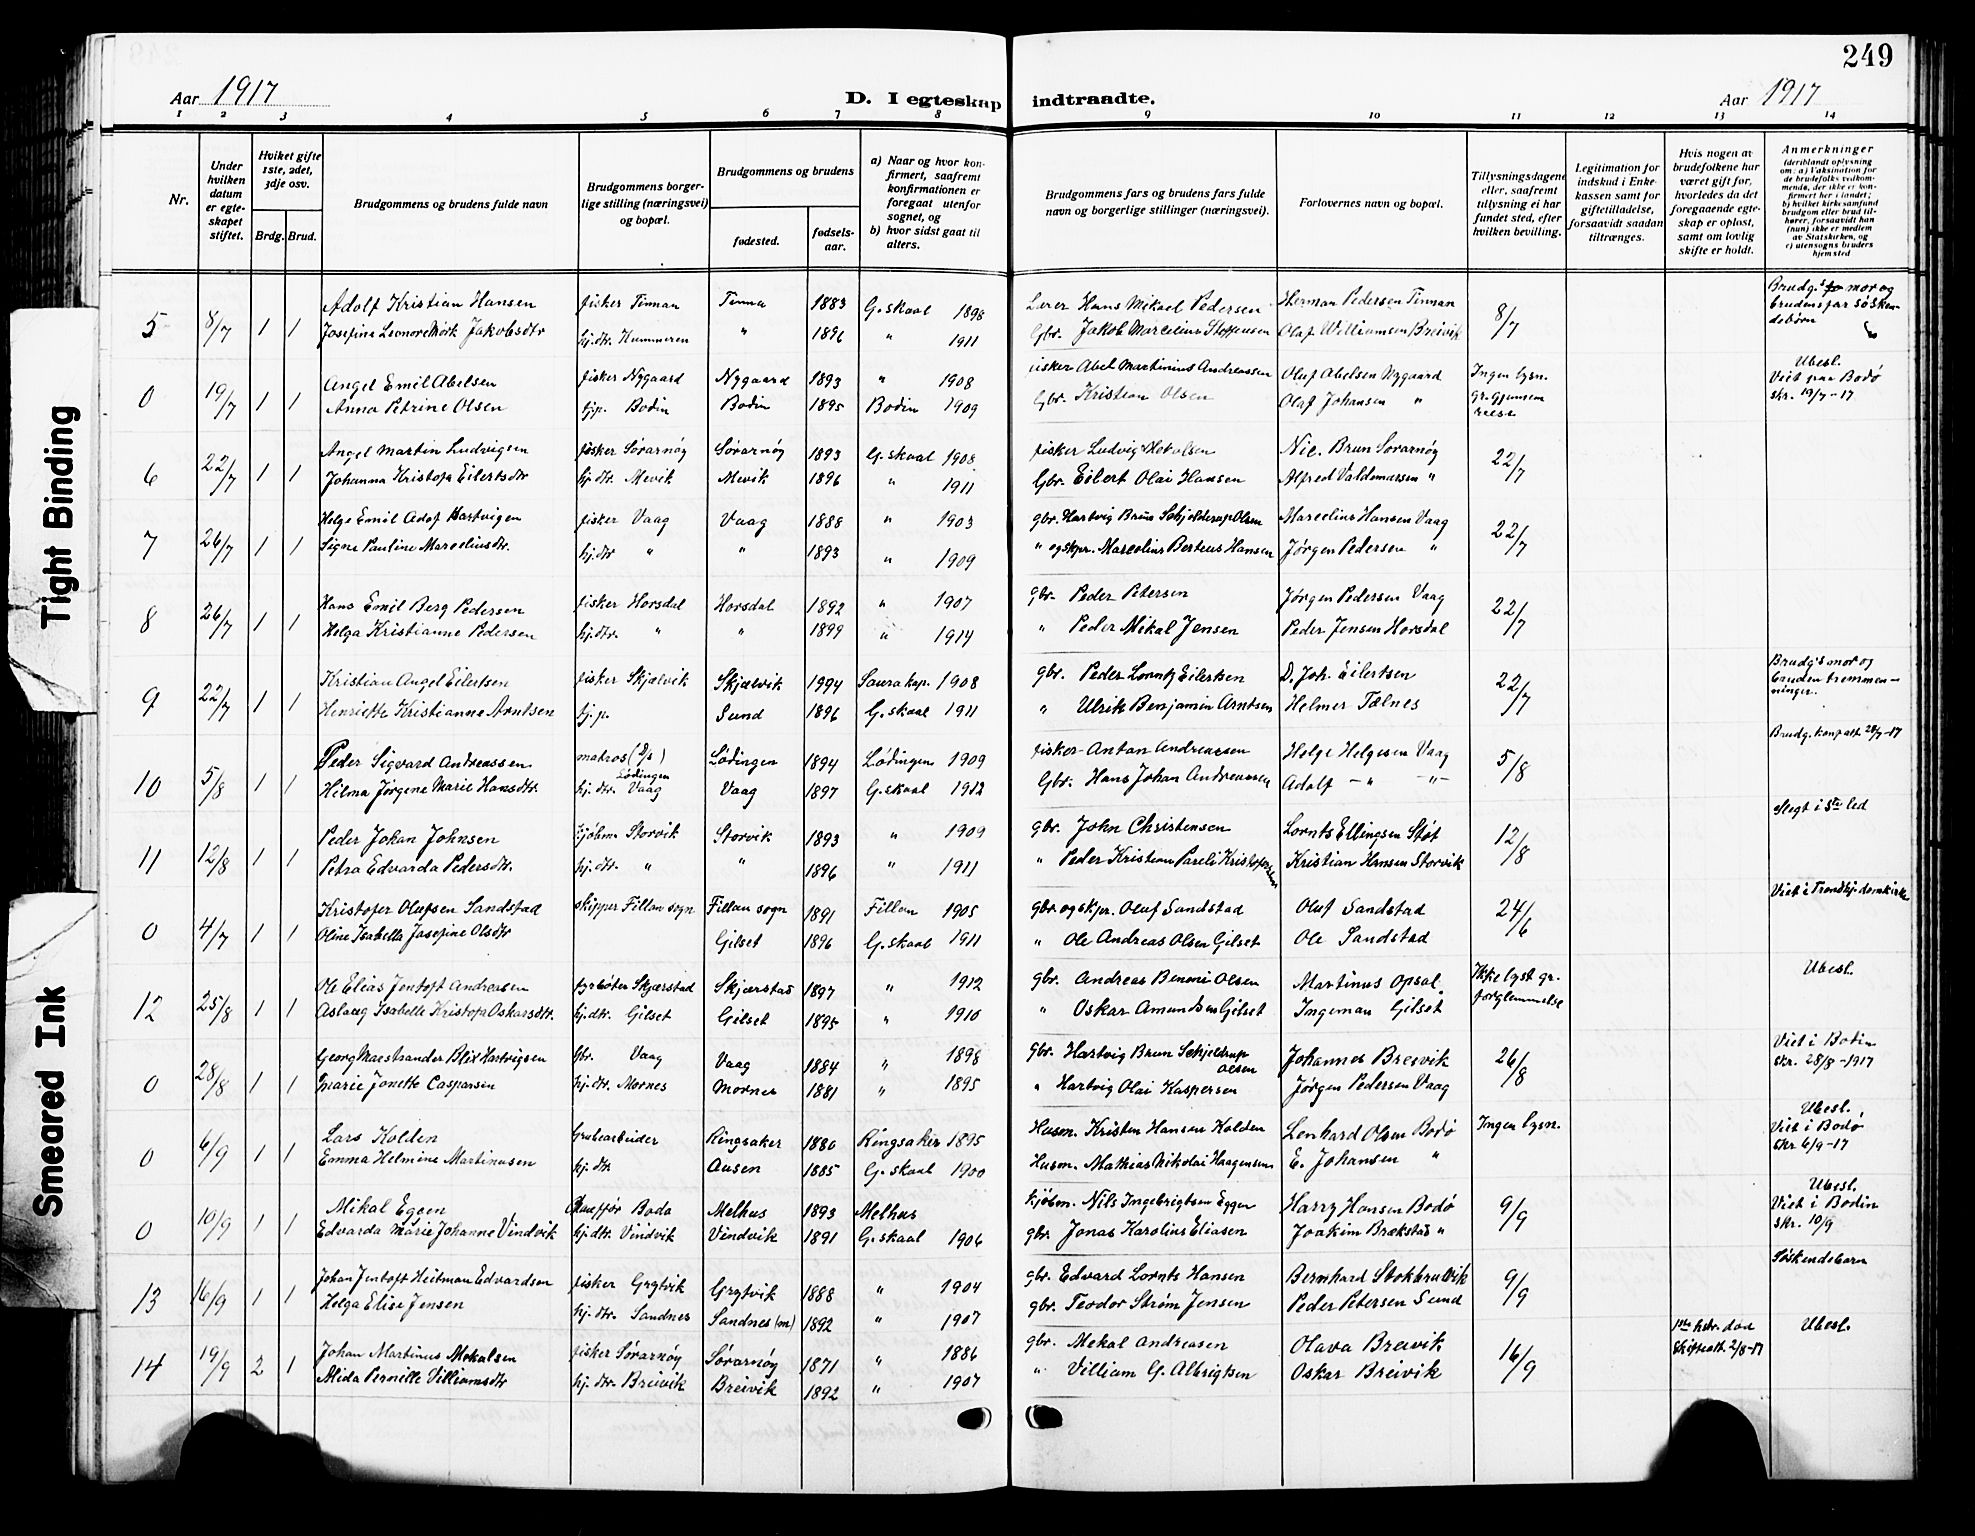 249
Aar 1917
D. I egteskap indtraadte.
Aar 1917
1 2 3 4 5 6 7 8 9 10 11 12 13 14
Nr.
Under hvilken datum er egteskapet stiftet.
Hvilket gifte 1ste, 2det, 3dje osv.
Brdg. Brud.
Brudgommens og brudens fulde navn
Brudgommens borgerlige stilling (næringsvei) og bopæl.
Brudgommens og brudens
fødested.
fødselsaar.
a) Naar og hvor konfirmert, saafremt konfirmationen er foregaat utenfor sognet, og
b) hvor sidst gaat til alters.
Brudgommens fars og brudens fars fulde navn og borgerlige stillinger (næringsvei).
Forlovernes navn og bopæl.
Tillysningsdagene eller, saafremt tillysning ei har fundet sted, efter hvilken bevilling.
Legitimation for indskud i Enkekassen samt for giftetilladelse, forsaavidt saadan tiltrænges.
Hvis nogen av brudefolkene har været gift før, hvorledes da det foregaaende egteskap er opløst, samt om lovlig skifte er holdt.
Anmerkninger (deriblandt oplysning om: a) Vaksination for de brudefolks vedkommende, der ikke er konfirmert her i landet; b) hvilket kirkesamfund brudgom eller brud tilhører, forsaavidt han (hun) ikke er medlem av Statskirken, og c) utensogns bruders hjemsted
5 8/7 1 1 Adolf Kristian Hansen fisker Finnan Finna 1883 G.skaal 1898 Lærer Hans Mikael Pedersen Herman Pedersen Finnan 8/7 Brudg.s mor og brudens far søskendebørn
Josefine Leonore Mørk Jakobsdtr hj.dtr. Hummeren " 1896 " 1911 Gbr. Jakob Marcelius Steffensen Olaf Williamsen Breivik
0 19/7 1 1 Angel Emil Abelsen fisker Nygaard Nygaard 1893 " 1908 fisker Abel Martinius Andreassen Oluf Abelsen Nygaard Ingen lysn. Ubesl. Viet paa Bodø skr. 19/7-17
Anna Petrine Olsen tjp. Bodin Bodin 1895 Bodin 1909 Gbr. Kristian Olsen Olaf Johansen "
6 22/7 1 1 Angel Martin Ludvigsen fisker Sørarnøy Sørarnøy 1893 G.skaal 1908 fisker Ludvig Mekalsen Nic. Brun Sørarnøy 22/7
Johanna Kristofa Eilertsdtr hj.dtr. Mevik Mevik 1896 " 1911 Gbr. Eilert Olai Hansen Alfred Valdemarsen "
7 26/7 1 1 Helge Emil Adof Hartvigen fisker Vaag Vaag 1888 " 1903 gbr. Hartvig Brun Schjelderup Olsen Marcelius Hansen Vaag 22/7
Signe Pauline Marceliusdtr. hj.dtr " " 1893 " 1909 " og skpr. Marcelius Berteus Hansen Jørgen Pedersen "
8 26/7 1 1 Hans Emil Berg Pedersen fisker Horsdal Horsdal 1892 " 1907 gbr. Peder Petersen Jørgen Pedersen Vaag 22/7
Helga Kristianne Pedersen hj.dtr. " " 1899 " 1914 " Peder Mikal Jensen Peder Jensen Horsdal
9 22/7 1 1 Kristian Angel Eilertsen fisker Skjælvik Skjælvik 1994 Saura kap. 1908 gbr. Peder Lorentz Eilertsen D. Joh. Eilertsen 22/7 Brudg's mor og bruden tremmenninger.
Henriette Kristianne Arntsen tj.p. Sund 1896 G.skaal 1911 " Ulrik Benjamin Arntsen Helmer Tælnes
10 5/8 1 1 Peder Sigvard Andreassen matros (D/s) Lødingen Lødingen 1894 Lødingen 1909 fisker Anton Andreassen Helge Helgesen Vaag 5/8
Hilma Jørgene Marie Hansdtr. hj.dtr. Vaag Vaag 1897 G.skaal 1912 Gbr. Hans Johan Andreassen Adolf — " — "
11 12/8 1 1 Peder Johan Johnsen kjøbm. Storvik Storvik 1893 " 1909 gbr. John Christensen Lornts Ellingsen Støt 12/8 Slegt i 3te led
Petra Edvarda Pedersdtr. hj.dtr. " " 1896 " 1911 " Peder Kristian Pareli Kristofersen Kristian Hansen Storvik
0 4/7 1 1 Kristofer Olufsen Sandstad skipper Fillan sogn Fillan sogn 1891 Fillan 1905 gbr og skpr. Oluf Sandstad Oluf Sandstad 24/6 Viet i Trondhj. domkirke
Oline Isabella Josefine Olsdtr Gilset 1896 G.skaal 1911 " Ole Andreas Olsen Gilset Ole Sandstad
12 25/8 1 1 Ole Elias Jentoft Andersen fyrbøter Skjærstad Skjærstad 1897 " 1912 gbr. Andreas Benoni Olsen Martinus Opsal Ikke lyst gr. forglemmelse Ubesl.
Aslaug Isabelle Kristofa Oskarsdtr. hj.dtr. Gilset Gilset 1895 " 1910 " Oskar Amundsen Gilset Ingeman Gilset
0 28/8 1 1 Georg Maestrander Blix Hartvigsen Gbr. Vaag Vaag 1884 " 1898 gbr. Hartvig Brun Schjeldrup Olsen Johannes Breivik 26/8 Viet i Bodin skr. 28/8-1917
Marie Jonette Caspersen hj.dtr. Mornes Mornes 1881 " 1895 " Hartvig Olai Kaspersen Jørgen Pedersen Vaag
0 6/9 1 1 Lars Kolden Grubearbeider Ringsaker 1880 Ringsaker 1895 Husm. Kristen Hansen Kolden Lenhard Olsen Bodø Ingen lysn. Ubesl. Viet i Bodø skr 6/9-17
Emma Helmine Martinusen hj.dtr Ausen 1885 G.skaal 1900 Husm. Mathias Nikolai Haagensen E. Johansen "
0 10/9 1 1 Mikal Eggen Chauffør Bodø Melhus 1893 Melhus kjøbm. Nils Ingebrigtsen Eggen Harry Hansen Bodø 9/9 Ubesl. Viet i Bodin skr. 10/9
Edvarda Marie Johanne Vindvik hj.dtr. Vindvik Vindvik 1891 G.skaal 1906 gbr. Jonas Karolius Eliasen Joakim Brækstad "
13 16/9 1 1 Johan Jentoft Heitman Edvardsen fisker Grytvik Grytvik 1888 " 1904 gbr. Edvard Lornts Hansen Bernhard Stokbrudvik 9/9 Søskendebarn
Helga Elise Jensen hj.dtr. Sandnes Sandnes (m) 1892 " 1907 gbr. Teodor Strøm Jensen Peder Petersen Sund
14 19/9 2 1 Johan Martinus Mekalsen fisker Sørarnøy Sørarnøy 1871 " 1886 gbr. Mekal Andreasen Olava Breivik 16/9 1ste hstr. død Skifteatt. 2/8-17 Ubesl.
Alida Pernille Villiamsdtr hj.dtr. Breivik Breivik 1892 " 1907 " Villiam G. Albrigtsen Oskar Breivik
Tight Binding
Smeared Ink